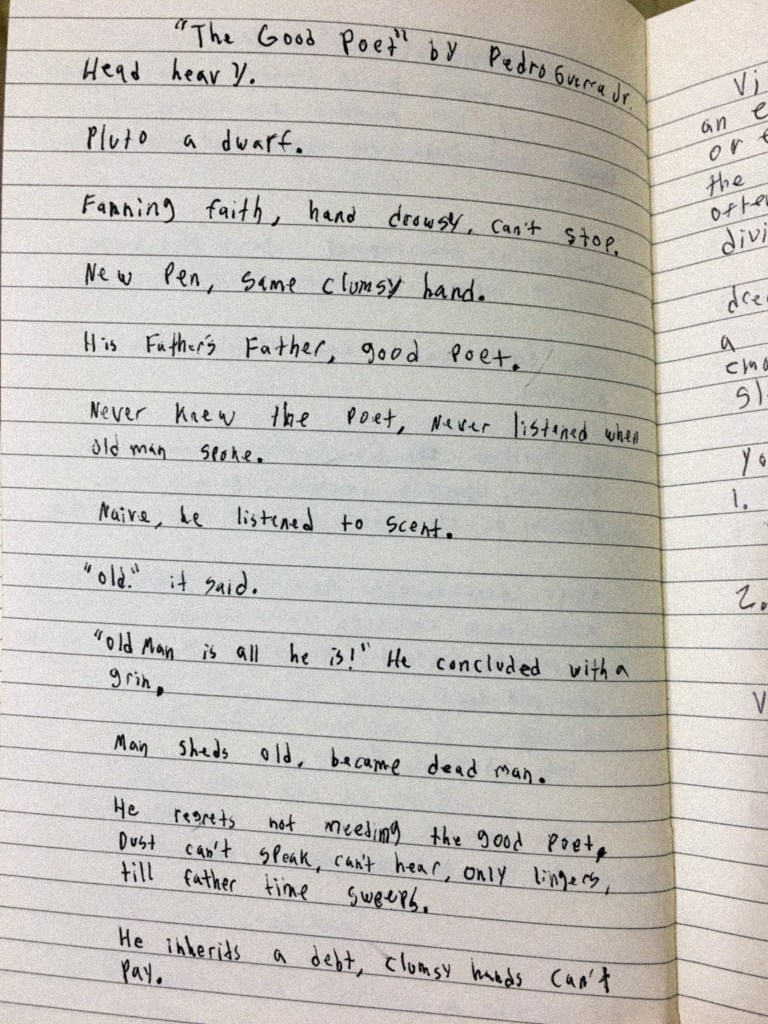 "The Good Poet" by Pedro Guerra Jr.
Head heavy.
Pluto a dwarf.
Fanning faith, hand drowsy, can't stop.
New Pen, same clumsy hand.
His Father's Father, good poet.
Never knew the poet, never listened when
old man spoke.
Naive, he listened to scent.
"Old." it said.
"Old Man is all he is!" He concluded with a
grin.
Man sheds old, became dead man.
He regrets not meeting the good poet.
Dust can't speak, can't hear, only lingers,
till father time sweeps.
He inherits a debt, clumsy hands can't
pay.
an
or
the
a
1.
2.